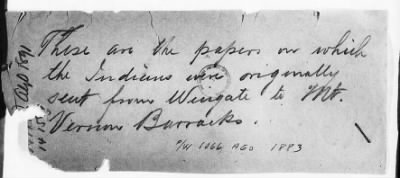 These are the papers on which
the Indians were originally
sent from Wingate to Mt.
Vernon Barracks.
F/W 1066 AGO 1883